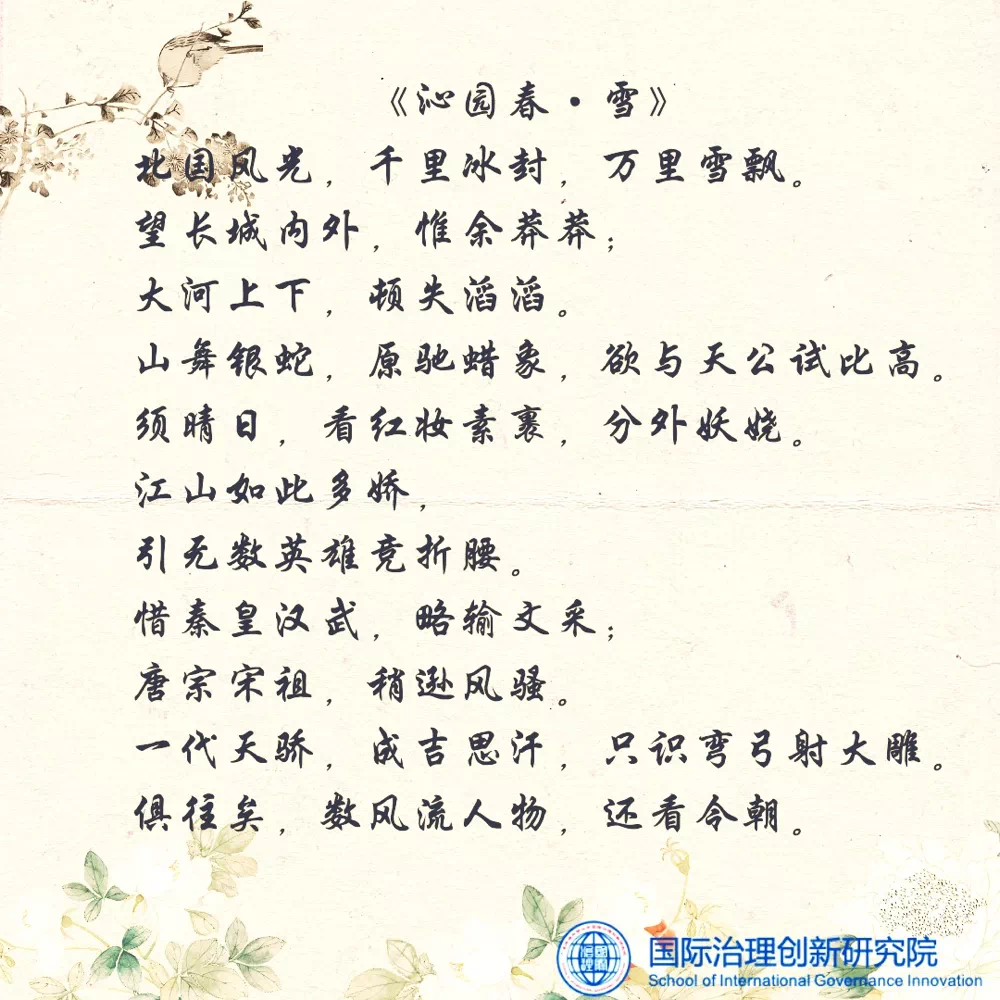 《沁园春·雪》
北国风光，千里冰封，万里雪飘。
望长城内外，惟余莽莽；
大河上下，顿失滔滔。
山舞银蛇，原驰蜡象，欲与天公试比高。
须晴日，看红妆素裹，分外妖娆。
江山如此多娇，
引无数英雄竞折腰。
惜秦皇汉武，略输文采；
唐宗宋祖，稍逊风骚。
一代天骄，成吉思汗，只识弯弓射大雕。
俱往矣，数风流人物，还看今朝。
国际治理创新研究院
School of International Governance Innovation